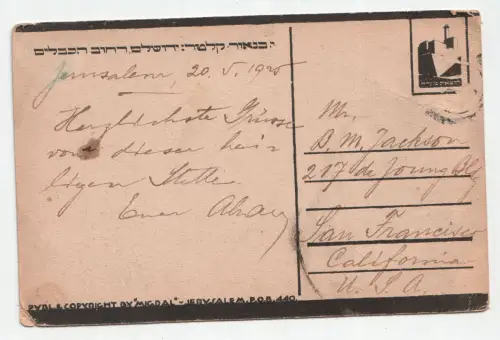 בנאור-קלטר: ירושלים, רחוב הכבלים
Jerusalem, 20. V. 1925
Herzlichste Grüsse
von dieser hei-
ligen Stelle
Euer
Mr.
B. M. Jackson
217 de Joung Blg
San Francisco
California
U. S. A.
PUBL & COPYRIGHT BY "MIGDAL" - JERUSALEM, P.O.B. 440.